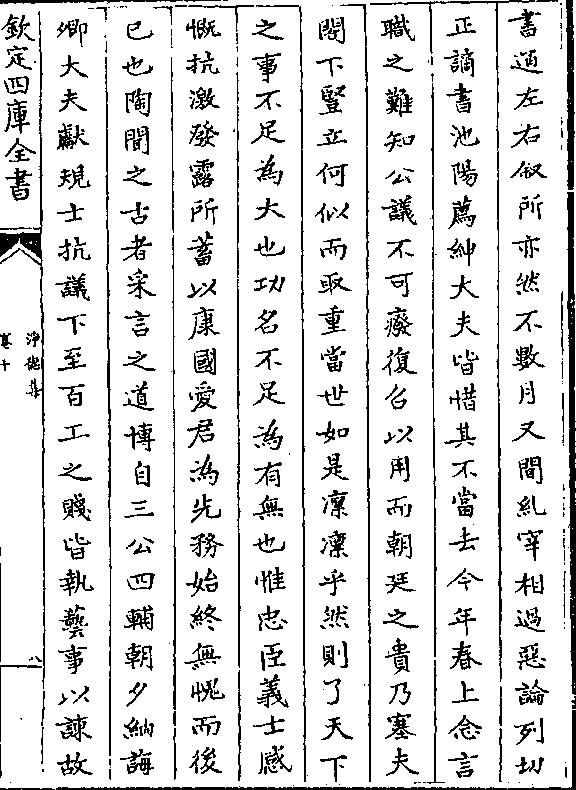 書通左右叙所亦然不數月又聞糺宰相過惡論列切
正謫書池陽薦紳大夫皆惜其不當去今年春上念言
職之難知公議不可癈復召以用而朝廷之貴乃塞夫
閤下豎立何似而取重當世如是凛凛乎然則了天下
之事不足為大也功名不足為有無也惟忠臣義士感
慨抗激發露所蓄以康國愛君為先務始終無愧而後
已也陶聞之古者采言之道博自三公四輔朝夕納誨
卿大夫獻規士抗議下至百工之賤皆執藝事以諫故
欽定四庫全書
淨德集
卷十
八